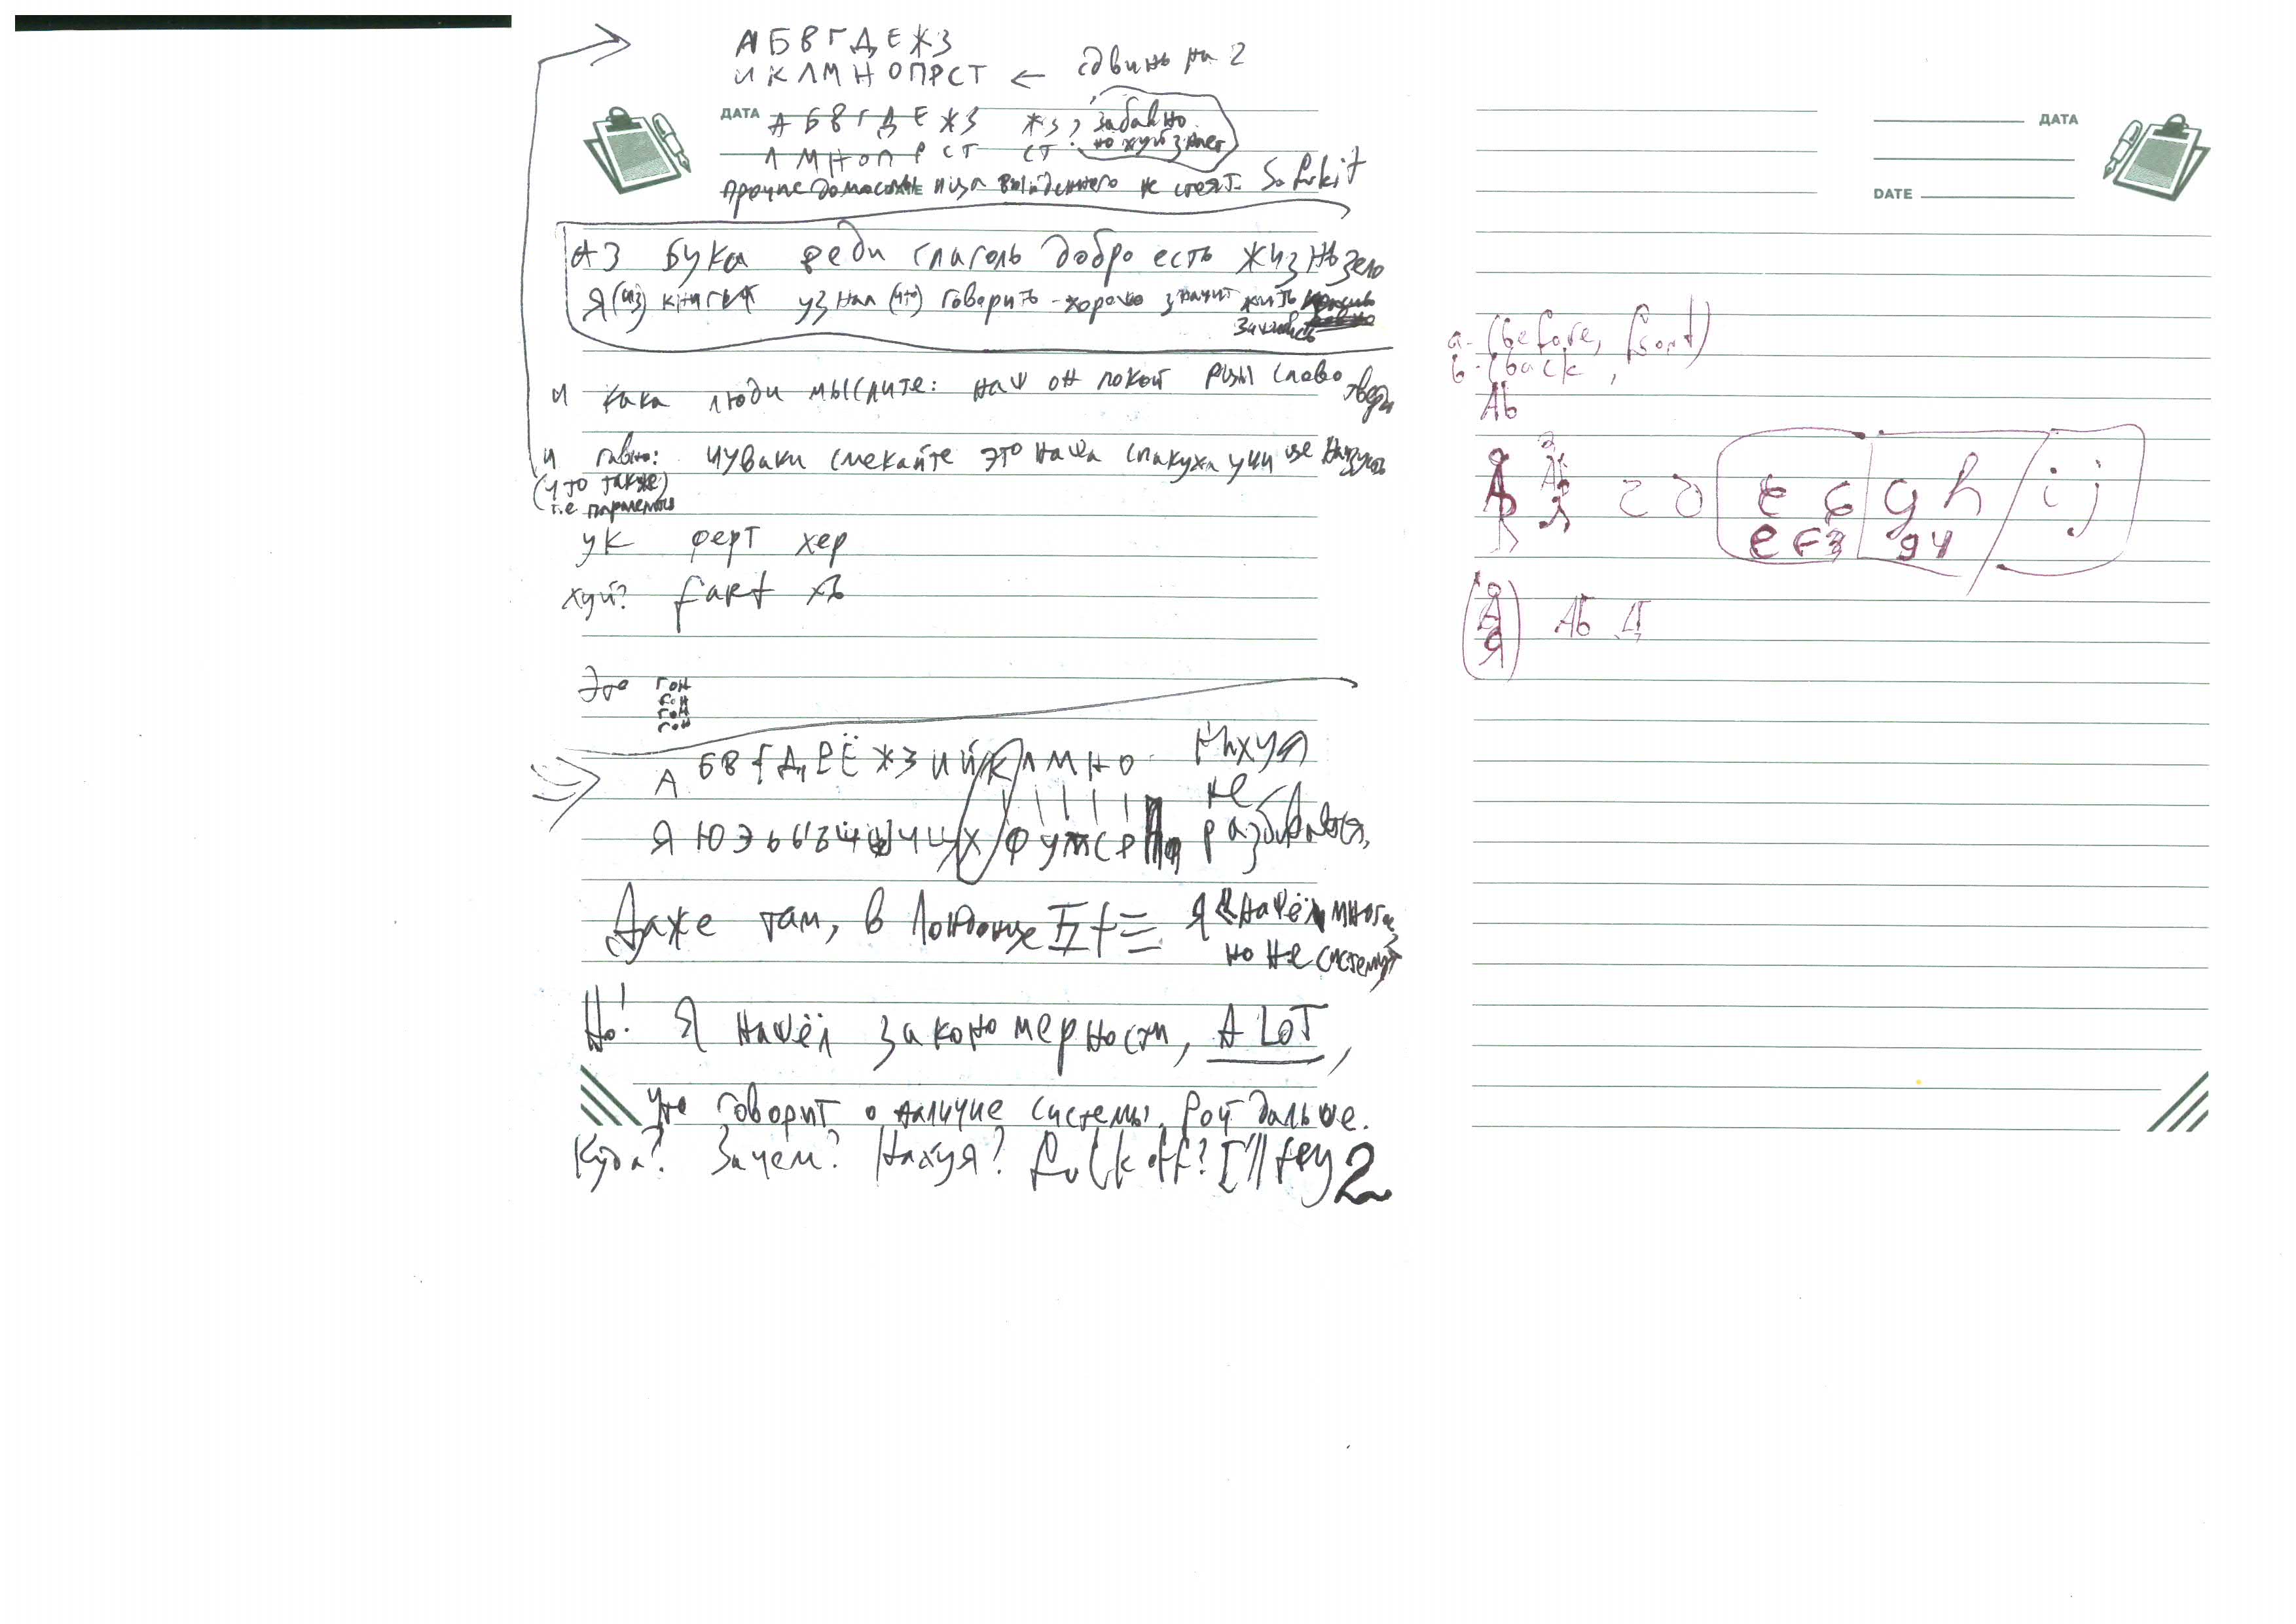 АБВГДЕЖЗ
ИКЛМНОПРСТ ← сдвинь на 2
ДАТА АБВГДЕЖЗ ЖЗ, забавно
ЛМНОПРСТ СТ. но хуй знает
прочие домыслы не стоят. So fuckit
DATE
АЗ бука веди глаголь добро есть жизнь зело
Я (из) книги узнал (что) говорить - хорошо значит жить
зашибись
и кака люди мыслите: наш он покой рцы слово тверди
и гавно: чуваки смекайте это наша
(что также)
т.е
ук ферт хер
хуй? fart хз
Это гон
гон
гон
гон
А БВГДЕЁЖЗИЙКЛМНО Нихуя
не
ЯЮЭЬЫЪЩШЧЦХФУТСРП разбивается,
Даже там, в Я нашёл много
но не систему
Но! Я нашёл закономерности, A LOT,
что говорит о наличие системы. Рой дальше.
Куда? Зачем? Нахуя? fuck off? I'll try 2
ДАТА
DATE
a - (before, front)
b - (back,
Ab
c d e g h i j
e F 3 g 4
Аб Д